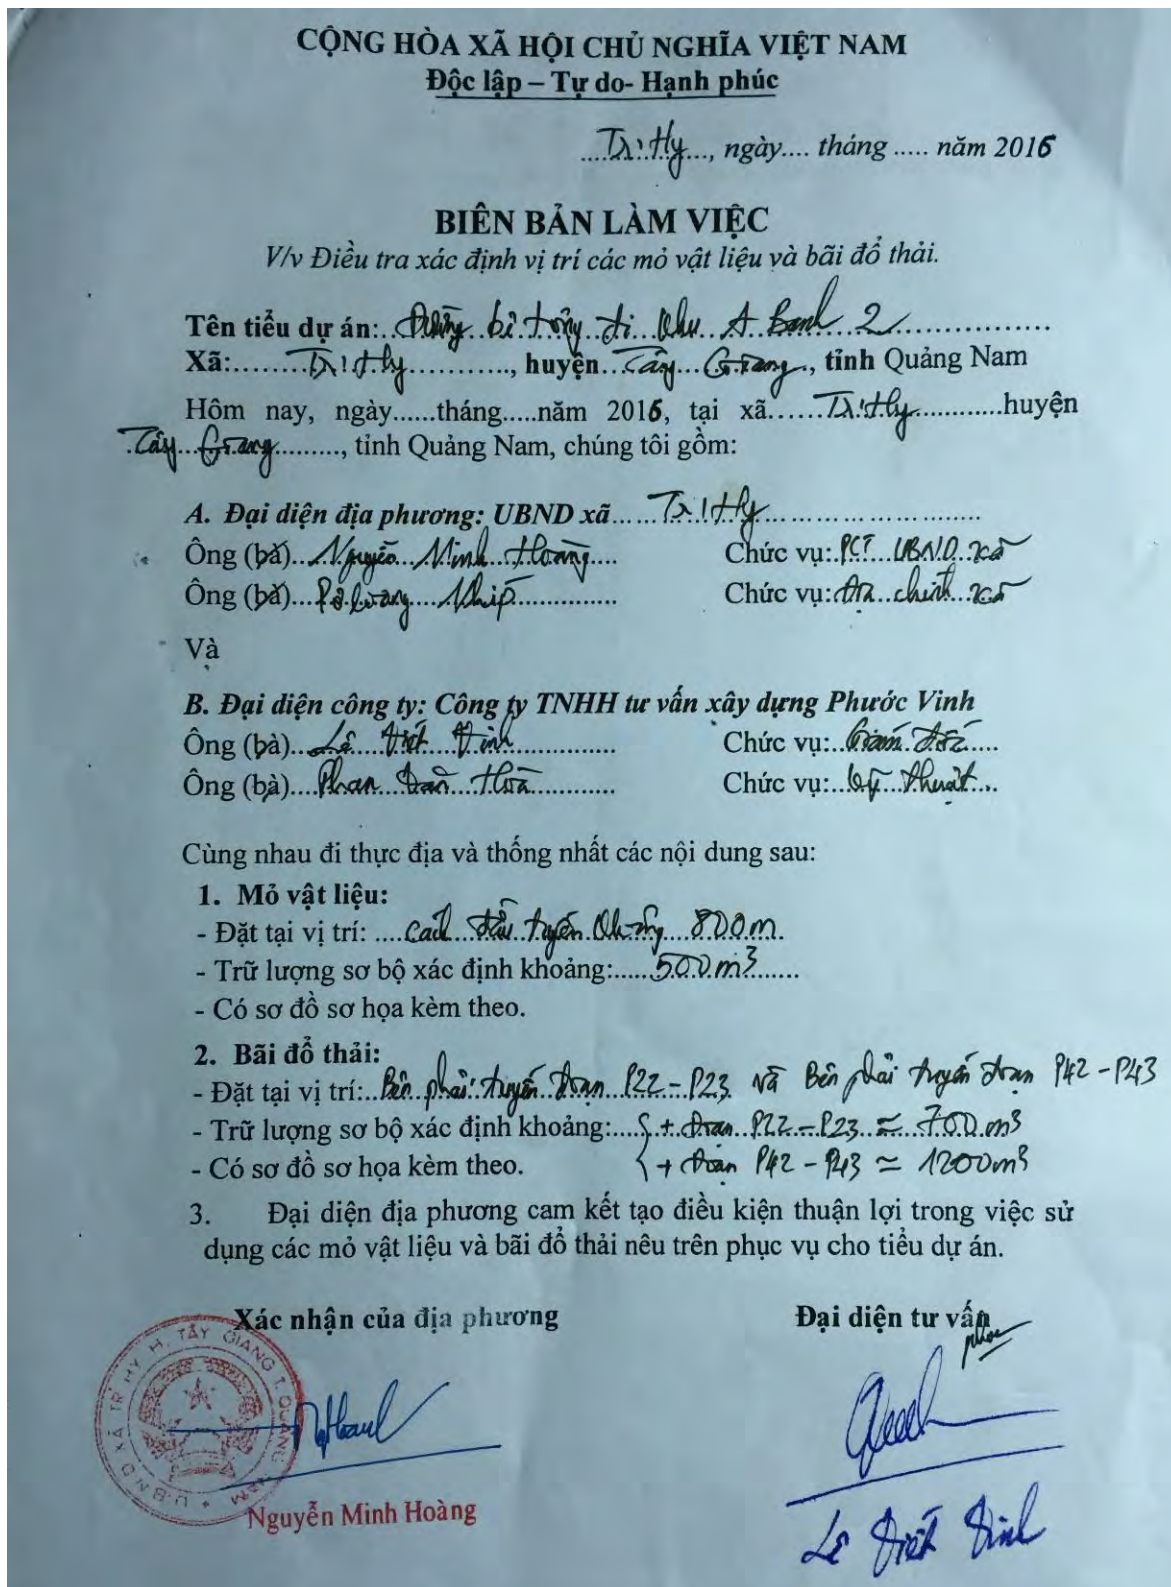 CỘNG HÒA XÃ HỘI CHỦ NGHĨA VIỆT NAM
Độc lập – Tự do- Hạnh phúc
....Tr'Hy..., ngày.... tháng ..... năm 2016
BIÊN BẢN LÀM VIỆC
V/v Điều tra xác định vị trí các mỏ vật liệu và bãi đổ thải.
Tên tiểu dự án:..Đường bê tông đi khu A Banh 2...................
Xã:........Tr'Hy............, huyện...Tây Giang., tỉnh Quảng Nam
Hôm nay, ngày......tháng.....năm 2016, tại xã......Tr'Hy............huyện
.Tây Giang........., tỉnh Quảng Nam, chúng tôi gồm:
A. Đại diện địa phương: UBND xã.....Tr'Hy........................
Ông (bà)...Nguyễn Minh Hoàng.... Chức vụ:.PCT UBND xã
Ông (bà)... Nhíp............... Chức vụ:.Địa chính xã
Và
B. Đại diện công ty: Công ty TNHH tư vấn xây dựng Phước Vinh
Ông (bà)...Lê Viết Vinh............... Chức vụ:..Giám đốc.....
Ông (bà)...Phan Hòa............ Chức vụ:...kỹ thuật...
Cùng nhau đi thực địa và thống nhất các nội dung sau:
1. Mỏ vật liệu:
- Đặt tại vị trí: ....cách đầu tuyến khoảng 800m.
- Trữ lượng sơ bộ xác định khoảng:......500m3........
- Có sơ đồ sơ họa kèm theo.
2. Bãi đổ thải:
- Đặt tại vị trí:..Bên phải tuyến đoạn P22-P23 và Bên phải tuyến đoạn P42-P43
- Trữ lượng sơ bộ xác định khoảng:....{ + Đoạn P22-P23 ≃ 700m3
- Có sơ đồ sơ họa kèm theo. + Đoạn P42-P43 ≃ 1200m3
3. Đại diện địa phương cam kết tạo điều kiện thuận lợi trong việc sử
dụng các mỏ vật liệu và bãi đổ thải nêu trên phục vụ cho tiểu dự án.
Xác nhận của địa phương Đại diện tư vấn
U.B.N.D XÃ TR'HY H. TÂY GIANG T. QUẢNG NAM
Nguyễn Minh Hoàng
Lê Viết Vinh